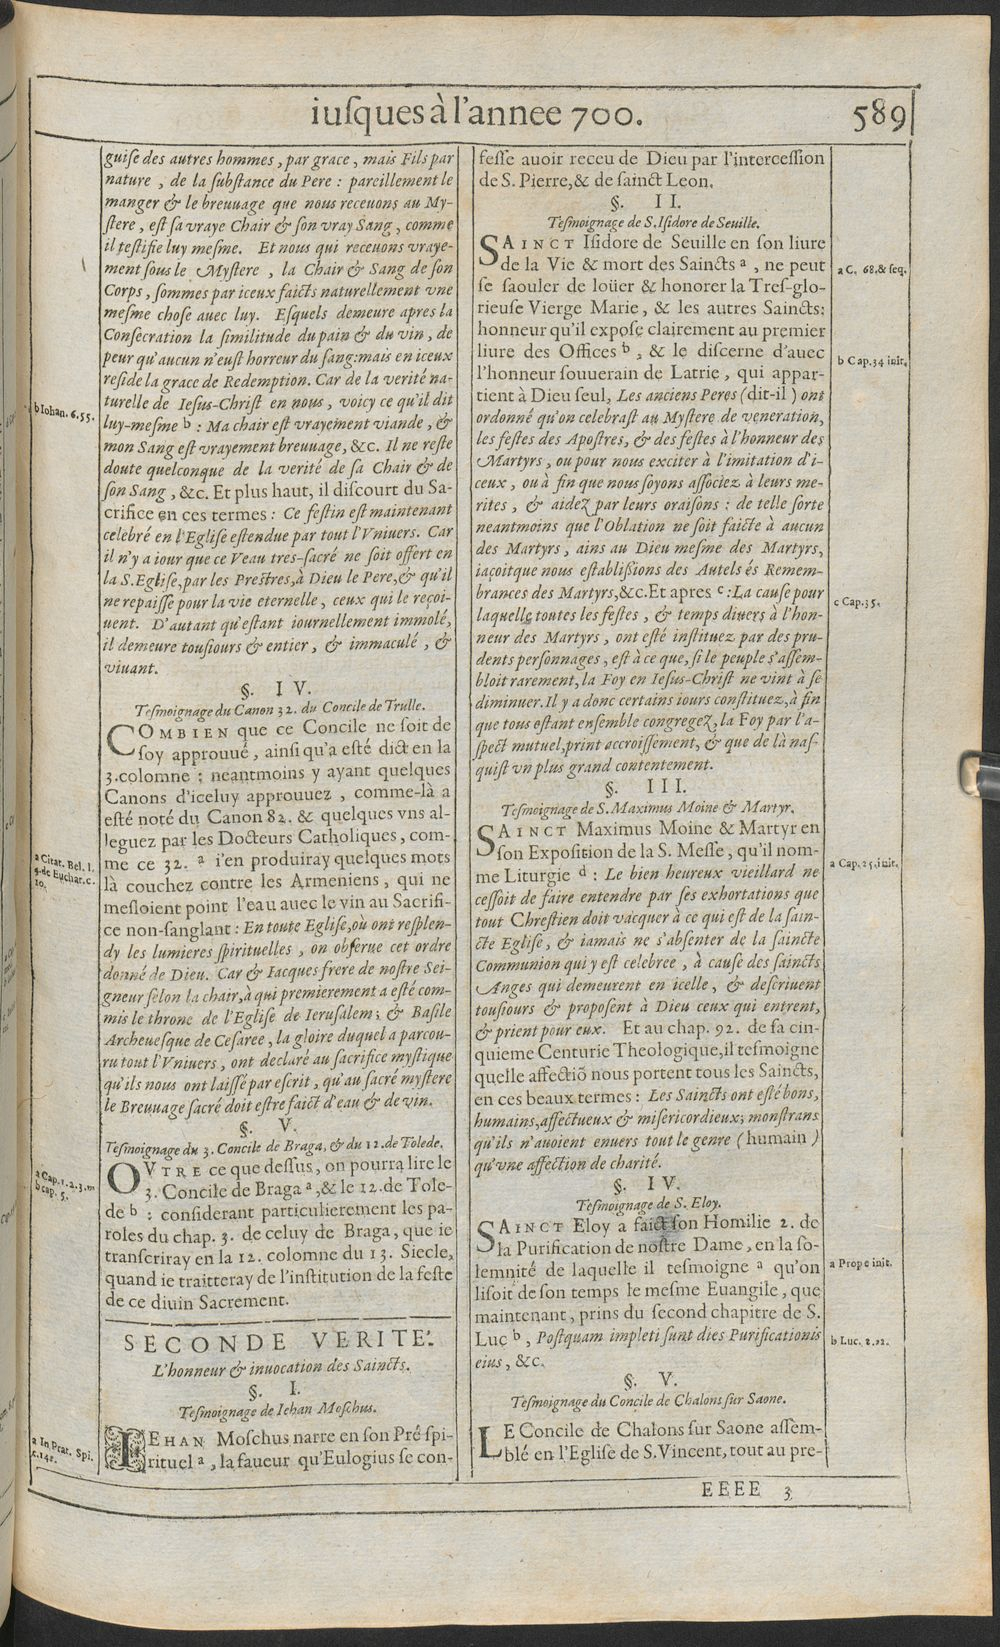 iuſques à l'annee 700.
589
guiſe des autres hommes, par grace, mais Fils par
nature, de la ſubſtance du Pere : pareillement le
manger & le breuuage que nous receuons au My-
ſtere, eſt ſa vraye Chair & ſon vray Sang, comme
il teſtifie luy meſme. Et nous qui receuons vraye-
ment ſous le Myſtere, la Chair & Sang de ſon
Corps, ſommes par iceux faicts naturellement vne
meſme choſe auec luy. Eſquels demeure apres la
Conſecration la ſimilitude du pain & du vin, de
peur qu'aucun n'euſt horreur du ſang: mais en iceux
reſide la grace de Redemption. Car de la verité na-
turelle de Ieſus-Chriſt en nous, voicy ce qu'il dit
luy-meſme b : Ma chair eſt vrayement viande, &
mon Sang eſt vrayement breuuage, &c. Il ne reſte
doute quelconque de la verité de ſa Chair & de
ſon Sang, &c. Et plus haut, il diſcourt du Sa-
crifice en ces termes : Ce feſtin eſt maintenant
celebré en l'Egliſe eſtendue par tout l'Vniuers. Car
il n'y a iour que ce Veau tres-ſacré ne ſoit offert en
la S. Egliſe, par les Preſtres, à Dieu le Pere, & qu'il
ne repaiſſe pour la vie eternelle, ceux qui le reçoi-
uent. D'autant qu'eſtant iournellement immolé,
il demeure touſiours & entier, & immaculé, &
viuant.
b Iohan. 6.55.
§. IV.
Teſmoignage du Canon 32. du Concile de Trulle.
COMBIEN que ce Concile ne ſoit de
ſoy approuué, ainſi qu'a eſté dict en la
3. colomne : neantmoins y ayant quelques
Canons d'iceluy approuuez, comme-là a
eſté noté du Canon 82. & quelques vns al-
leguez par les Docteurs Catholiques, com-
me ce 32. a i'en produiray quelques mots
là couchez contre les Armeniens, qui ne
meſloient point l'eau auec le vin au Sacrifi-
ce non-ſanglant : En toute Egliſe, où ont reſplen-
dy les lumieres ſpirituelles, on obſerue cet ordre
donné de Dieu. Car & Iacques frere de noſtre Sei-
gneur ſelon la chair, à qui premierement a eſté com-
mis le throne de l'Egliſe de Ieruſalem; & Baſile
Archeueſque de Ceſaree, la gloire duquel a parcou-
ru tout l'Vniuers, ont declaré au ſacrifice myſtique
qu'ils nous ont laiſſé par eſcrit, qu'au ſacré myſtere
le Breuuage ſacré doit eſtre faict d'eau & de vin.
a Citat. Bel. l.
4. de Euchar. c.
10.
§. V.
Teſmoignage du 3. Concile de Braga, & du 12. de Tolede.
OVTRE ce que deſſus, on pourra lire le
3. Concile de Braga a, & le 12. de Tole-
de b : conſiderant particulierement les pa-
roles du chap. 3. de celuy de Braga, que ie
tranſcriray en la 12. colomne du 13. Siecle,
quand ie traitteray de l'inſtitution de la feſte
de ce diuin Sacrement.
a Cap. 1. 2. 3.
b cap. 5.
SECONDE VERITE'.
L'honneur & inuocation des Saincts.
§. I.
Teſmoignage de Iehan Moſchus.
IEHAN Moſchus narre en ſon Pré ſpi-
rituel a, la faueur qu'Eulogius ſe con-
a In Prat. Spi.
c. 148.
feſſe auoir receu de Dieu par l'interceſſion
de S. Pierre, & de ſainct Leon.
§. II.
Teſmoignage de S. Iſidore de Seuille.
SAINCT Iſidore de Seuille en ſon liure
de la Vie & mort des Saincts a, ne peut
ſe ſaouler de loüer & honorer la Treſ-glo-
rieuſe Vierge Marie, & les autres Saincts:
honneur qu'il expoſe clairement au premier
liure des Offices b, & le diſcerne d'auec
l'honneur ſouuerain de Latrie, qui appar-
tient à Dieu ſeul, Les anciens Peres (dit-il) ont
ordonné qu'on celebraſt au Myſtere de veneration,
les feſtes des Apoſtres, & des feſtes à l'honneur des
Martyrs, ou pour nous exciter à l'imitation d'i-
ceux, ou à fin que nous ſoyons aſſociez à leurs me-
rites, & aidez par leurs oraiſons : de telle ſorte
neantmoins que l'Oblation ne ſoit faicte à aucun
des Martyrs, ains au Dieu meſme des Martyrs,
iaçoitque nous eſtabliſſions des Autels és Remem-
brances des Martyrs, &c. Et apres c : La cauſe pour
laquelle toutes les feſtes, & temps diuers à l'hon-
neur des Martyrs, ont eſté inſtituez par des pru-
dents perſonnages, eſt à ce que, ſi le peuple s'aſſem-
bloit rarement, la Foy en Ieſus-Chriſt ne vint à ſe
diminuer. Il y a donc certains iours conſtituez, à fin
que tous eſtant enſemble congregez, la Foy par l'a-
ſpect mutuel, print accroiſſement, & que de là naſ-
quiſt vn plus grand contentement.
a C. 68. & ſeq.
b Cap. 34 init.
c Cap. 35.
§. III.
Teſmoignage de S. Maximus Moine & Martyr.
SAINCT Maximus Moine & Martyr en
ſon Expoſition de la S. Meſſe, qu'il nom-
me Liturgie d : Le bien heureux vieillard ne
ceſſoit de faire entendre par ſes exhortations que
tout Chreſtien doit vacquer à ce qui eſt de la ſain-
cte Egliſe, & iamais ne s'abſenter de la ſaincte
Communion qui y eſt celebree, à cauſe des ſaincts
Anges qui demeurent en icelle, & deſcriuent
touſiours & propoſent à Dieu ceux qui entrent,
& prient pour eux. Et au chap. 92. de ſa cin-
quieme Centurie Theologique, il teſmoigne
quelle affectiõ nous portent tous les Saincts,
en ces beaux termes : Les Saincts ont eſté bons,
humains, affectueux & miſericordieux; monſtrans
qu'ils n'auoient enuers tout le genre (humain)
qu'vne affection de charité.
a Cap. 25. init.
§. IV.
Teſmoignage de S. Eloy.
SAINCT Eloy a faict ſon Homilie 2. de
la Purification de noſtre Dame, en la ſo-
lemnité de laquelle il teſmoigne a qu'on
liſoit de ſon temps le meſme Euangile, que
maintenant, prins du ſecond chapitre de S.
Luc b, Poſtquam impleti ſunt dies Purificationis
eius, &c.
a Prope init.
b Luc. 2.22.
§. V.
Teſmoignage du Concile de Chalons ſur Saone.
LE Concile de Chalons ſur Saone aſſem-
blé en l'Egliſe de S. Vincent, tout au pre-
EEEE 3